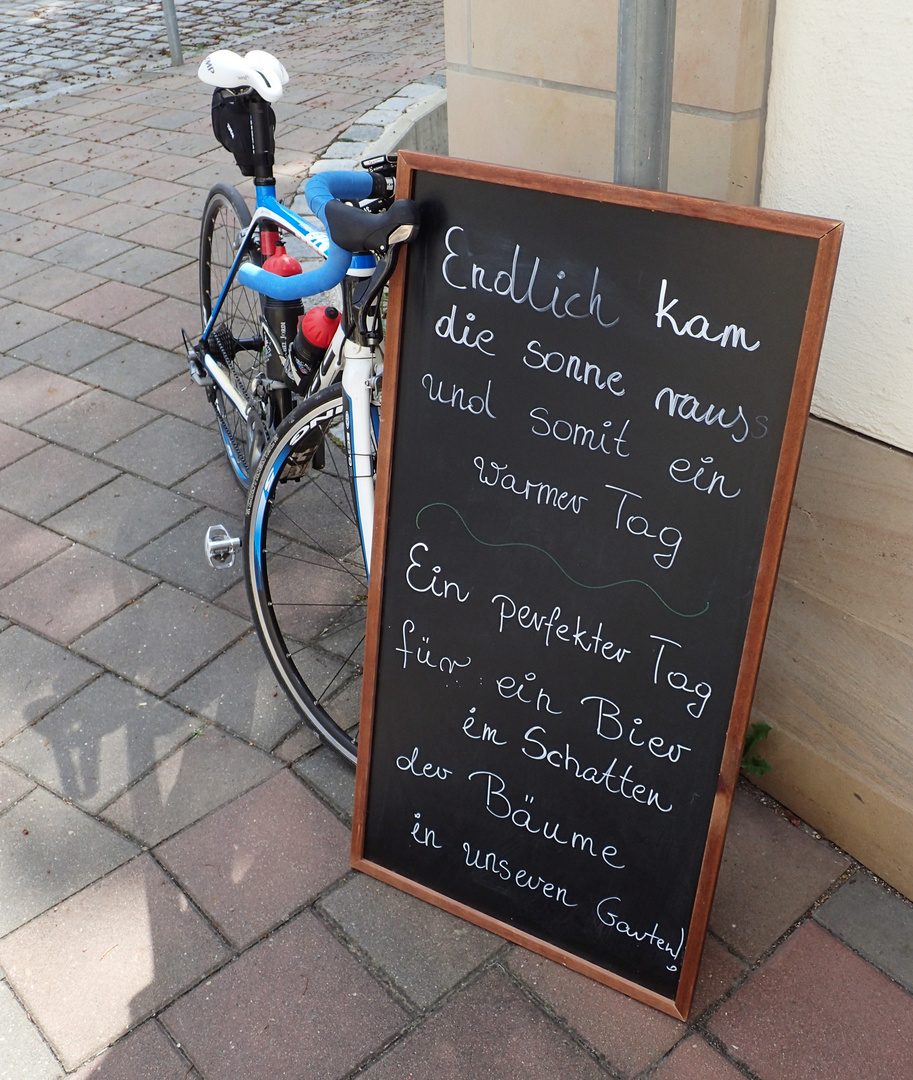 Endlich kam
die sonne rauss
und somit ein
warmer Tag
Ein perfekter Tag
für ein Bier
im Schatten
der Bäume
in unseren Garten!